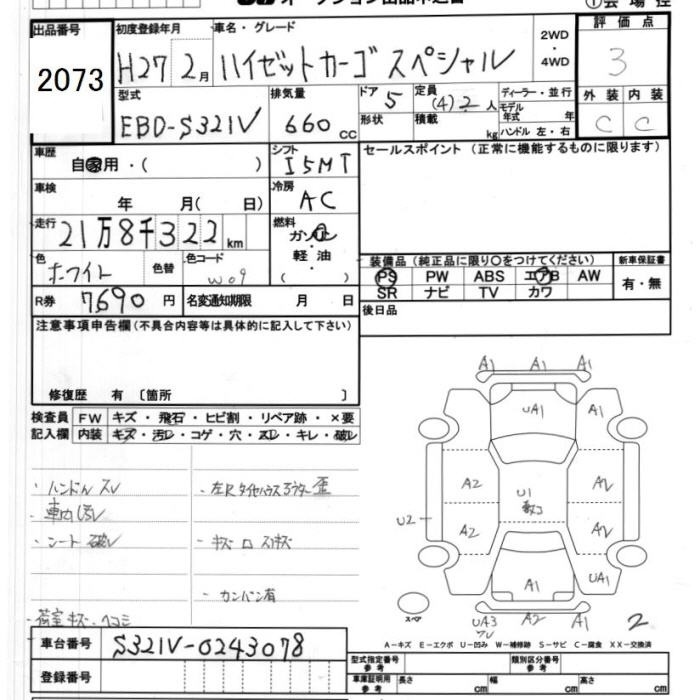 オークション出品申込書
①会場控
出品番号 2073
初度登録年月 H27 2月
車名・グレード ハイゼットカーゴ スペシャル
2WD・4WD
評価点 3
外装 C 内装 C
型式 EBD-S321V
排気量 660cc
ドア 5
形状
定員 (4)2人
積載 kg
ディーラー・並行
モデル年式 年
ハンドル 左・右
車歴 自家用・( )
シフト I5MT
セールスポイント(正常に機能するものに限ります)
車検 年 月( 日)
冷房 AC
走行 21万8千322km
燃料 ガソリン・軽油・( )
色 ホワイト 色替
色コード W09
装備品(純正品に限り○をつけてください)
PS PW ABS エアB AW
SR ナビ TV カワ
新車保証書 有・無
R券 7690円
名変通知期限 月 日
後日品
注意事項申告欄(不具合内容等は具体的に記入して下さい)
修復歴 有〔箇所 〕
検査員記入欄
FW キズ・飛石・ヒビ割・リペア跡・×要
内装 キズ・汚レ・コゲ・穴・スレ・キレ・破レ
・ハンドル スレ
・車内汚レ
・シート破レ
・荷室キズ・ヘコミ
・左Rタイヤハウスアウター歪
・キズ ロ スキズ
・カンバン有
A1 A1 A1
UA1 A1
A2 U1 A2
U2 A2 A2
A1 UA1
スペア
UA3 A2 A1
2
A-キズ E-エクボ U-凹み W-補修跡 S-サビ C-腐食 XX-交換済
車台番号 S321V-0243078
登録番号
型式指定番号 参考
類別区分番号 参考
車庫証明用 参考 長さ cm 幅 cm 高さ cm